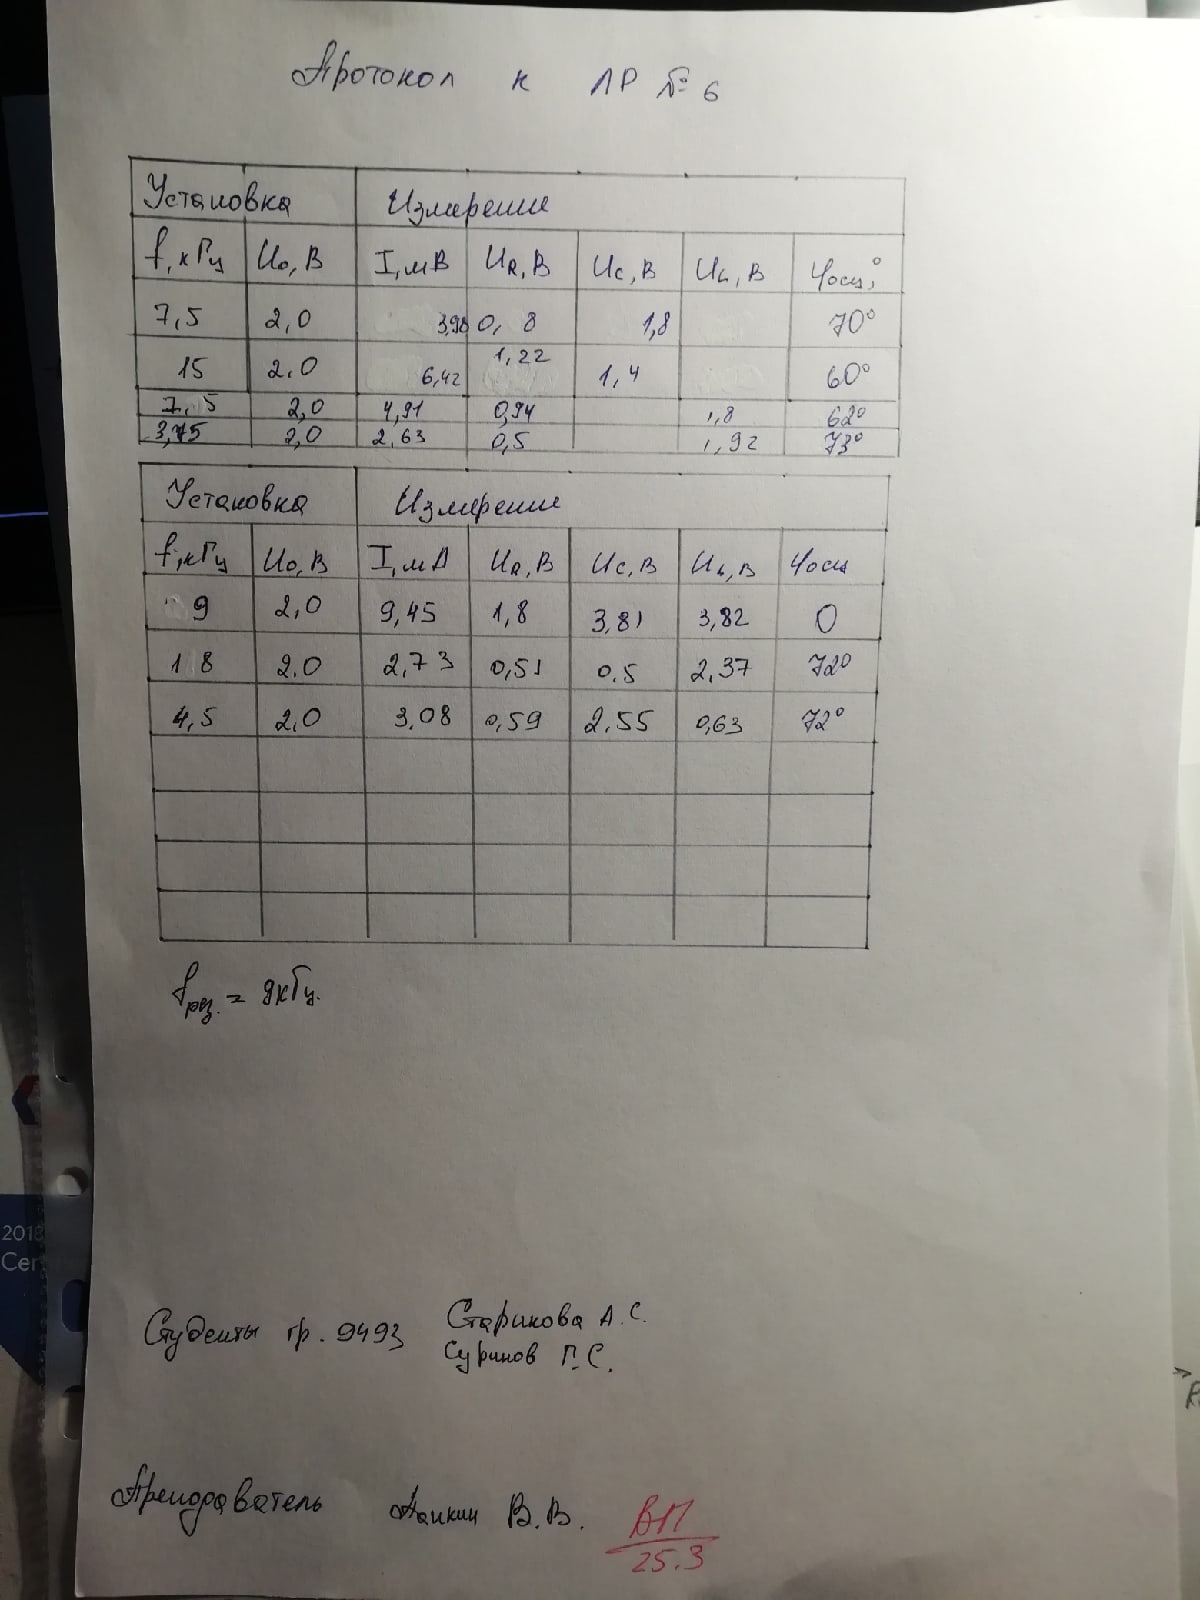 Протокол к ЛР № 6
Установка Измерение
f, кГц U₀, В I, мВ U_R, В U_C, В U_L, В φосц,°
7,5 2,0 3,98 0,8 1,8 70°
15 2,0 6,42 1,22 1,4 60°
7,5 2,0 4,91 0,94 1,8 62°
3,75 2,0 2,63 0,5 1,92 73°
Установка Измерение
f, кГц U₀, В I, мА U_R, В U_C, В U_L, В φосц
9 2,0 9,45 1,8 3,81 3,82 0
18 2.0 2,73 0,51 0.5 2,37 72°
4,5 2,0 3,08 0,59 2.55 0,63 72°
fрез. = 9кГц.
Студенты гр. 9493 Старикова А.С.
Суринов Г.С.
Преподаватель Панкин В.В.
ВП
25.3
2018
Cer